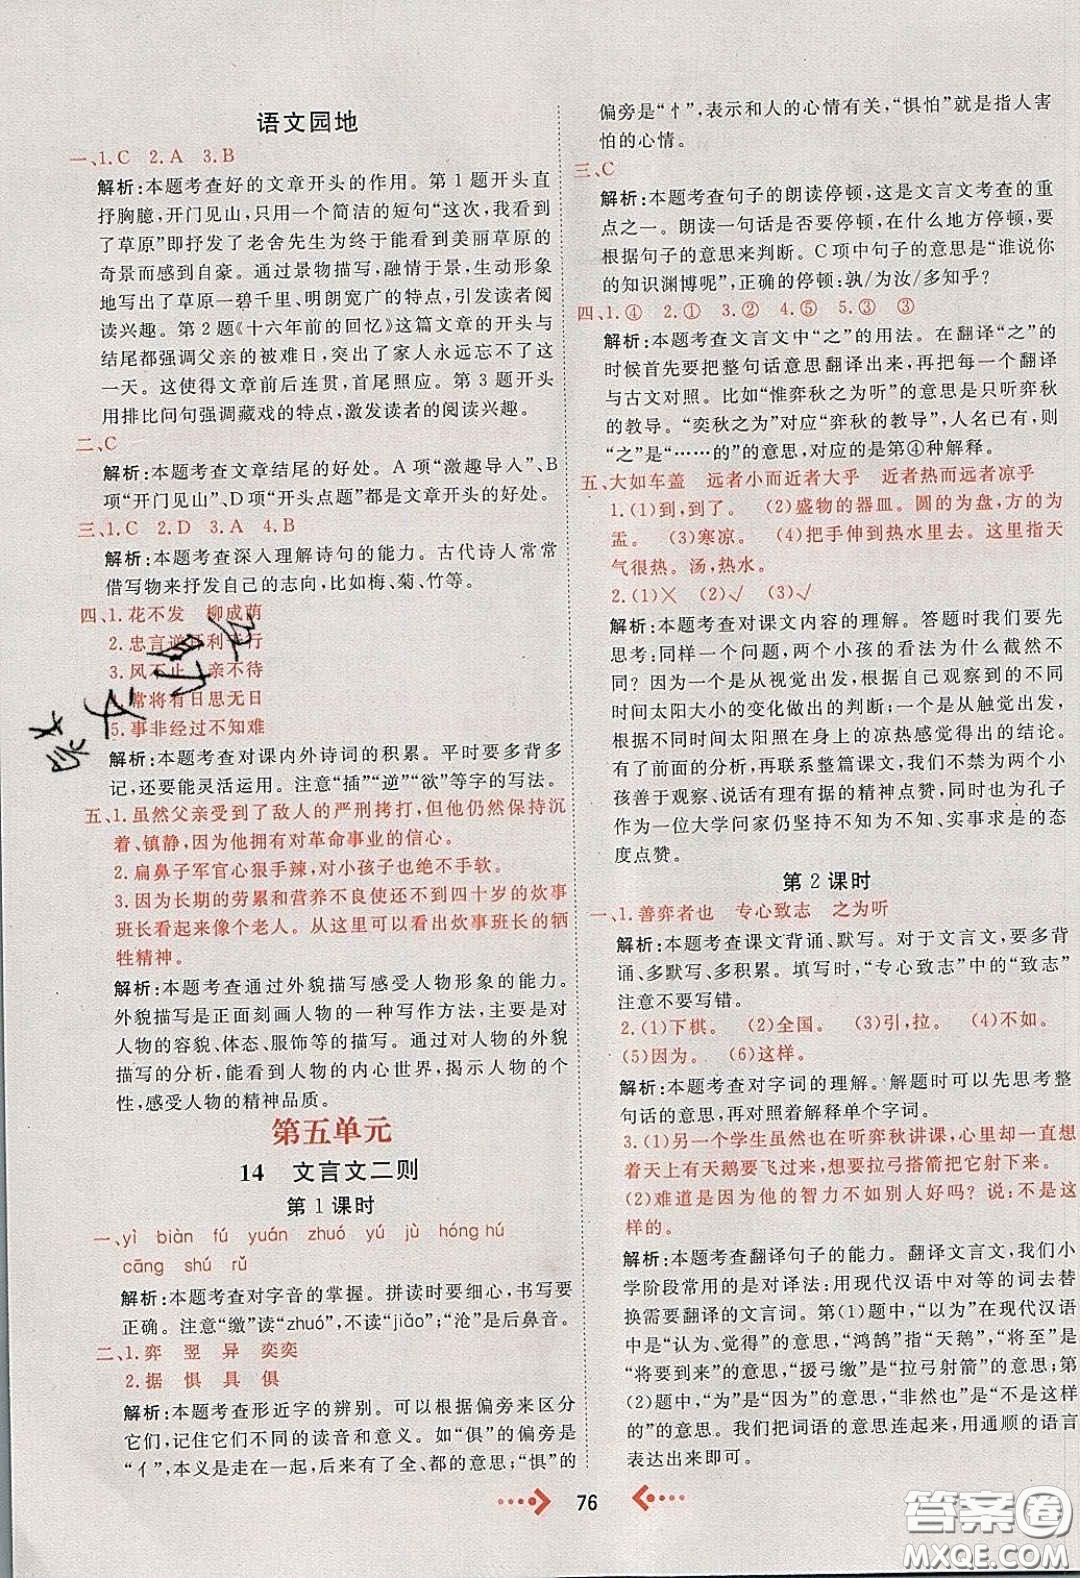 语文园地
一、1.C 2.A 3.B
解析:本题考查好的文章开头的作用。第1题开头直
抒胸臆，开门见山，只用一个简洁的短句“这次，我看到
了草原”即抒发了老舍先生为终于能看到美丽草原的
奇景而感到自豪。通过景物描写，融情于景，生动形象
地写出了草原一碧千里、明朗宽广的特点，引发读者阅
读兴趣。第2题《十六年前的回忆》这篇文章的开头与
结尾都强调父亲的被难日，突出了家人永远忘不了这
一天。这使得文章前后连贯，首尾照应。第3题开头
用排比问句强调藏戏的特点，激发读者的阅读兴趣。
二、C
解析:本题考查文章结尾的好处。A项“激趣导入”、B
项“开门见山”、D项“开头点题”都是文章开头的好处。
三、1.C 2.D 3.A 4.B
解析:本题考查深入理解诗句的能力。古代诗人常常
借写物来抒发自己的志向，比如梅、菊、竹等。
四、1.花不发 柳成荫
2.忠言逆耳利于行
3.风不止 亲不待
4.常将有日思无日
5.事非经过不知难
解析:本题考查对课内外诗词的积累。平时要多背多
记，还要能灵活运用。注意“插”“逆”“欲”等字的写法。
五、1.虽然父亲受到了敌人的严刑拷打，但他仍然保持沉
着、镇静，因为他拥有对革命事业的信心。
2.扁鼻子军官心狠手辣，对小孩子也绝不手软。
3.因为长期的劳累和营养不良使得不到四十岁的炊事
班长看起来像个老人。可以看出炊事班长的牺
牲精神。
解析:本题考查通过外貌描写感受人物形象的能力。
外貌描写是正面刻画人物的一种写作方法，主要是对
人物的容貌、体态、服饰等的描写。通过对人物的外貌
描写的分析，能看到人物的内心世界，揭示人物的个
性，感受人物的精神品质。
第五单元
14 文言文二则
第1课时
一、yì biàn fú yuán zhuó yú jù hóng hú
cāng shú rǔ
解析:本题考查对字音的掌握。拼读时要细心，书写要
正确。注意“缴”读“zhuó”，不读“jiǎo”；“沧”是后鼻音。
二、1.弈 翌 异 奕奕
2.据 惧 具 俱
解析:本题考查形近字的辨别。可以根据偏旁来区分
它们，记忆它们不同的读音和意义。如“俱”的偏旁是
“亻”，本义是走在一起，后来引申为全、都；“惧”的
偏旁是“忄”，表示和人的心情有关，“惧怕”就是指人害
怕的心情。
三、C
解析:本题考查句子的朗读停顿，这是文言文考查的重
点之一。朗读一句话是否要停顿，在什么地方停顿，要
根据句子的意思来判断。C项中句子的意思是“谁说你
的知识渊博呢”，正确的停顿:孰/为汝/多知乎？
四、1.④ 2.① 3.② 4.⑤ 5.③ ③
解析:本题考查文言文中“之”的用法。在翻译“之”的
时候首先要把整句话意思翻译出来，再把每一个翻译
与古文对照。比如“惟弈秋之为听”的意思是只听弈秋
的教导。“奕秋之为”对应“弈秋的教导”，人名已有，则
“之”是“……的”的意思，对应的是第④种解释。
五、大如车盖 远者小而近者大乎 近者热而远者凉乎
1.(1)到，到了。 (2)盛物的器皿。圆的为盘，方的为
盂。 (3)寒凉。 (4)把手伸到热水里去。这里指天
气很热。汤，热水。
2.(1)× (2)√ (3)√
解析:本题考查对课文内容的理解。答题时我们要先
思考:同样一个问题，两个小孩的看法为什么截然不
同？一个是从视觉出发，根据自己观察到的不同时
时间太阳大小的变化做出的判断；一个是从触觉出发，
根据不同时间太阳照在身上的凉热感觉得出的结论。
有了前面的分析，再联系整篇课文，能够为两个小
孩善于观察、说话有理有据的精神点赞，同时也为孔子
作为一位大学问家仍坚持不知为不知、实事求是的态
度点赞。
第2课时
一、1.善弈者也 专心致志 之为听
解析:本题考查课文背诵、默写。对于文言文，要多背
诵、多默写、多积累。填写时，“专心致志”中的“致志”
注意不要写错。
2.(1)下棋。 (2)全国。 (3)引，拉。 (4)不如。
(5)因为。 (6)这样。
解析:本题考查对字词的理解。解题时可以先思考整
句话的意思，再对照着解释单个字词。
3.(1)另一个学生虽然也在听弈秋讲课，心里却一直想
着天上有天鹅要飞过来，想要拉弓搭箭把它射下来。
(2)难道是因为他的智力不如别人好吗？说:不是
这样的。
解析:本题考查翻译句子的能力。翻译文言文，我们小
学阶段常用的是对译法:用现代汉语中对等的词去替
换需要翻译的文言词。第(1)题中，“以为”在现代汉语
中是“认为、觉得”的意思，“鸿鹄”指“天鹅”，“将至”是
“将要到来”的意思，“援弓缴”是“拉弓射箭”的意思；第
(2)题中，“为”是“因为”的意思，“非然也”是“不是这
样”的意思。我们把词语的意思连起来，用通顺的语言
表达出来即可。
76
答案圈
MXQE.COM